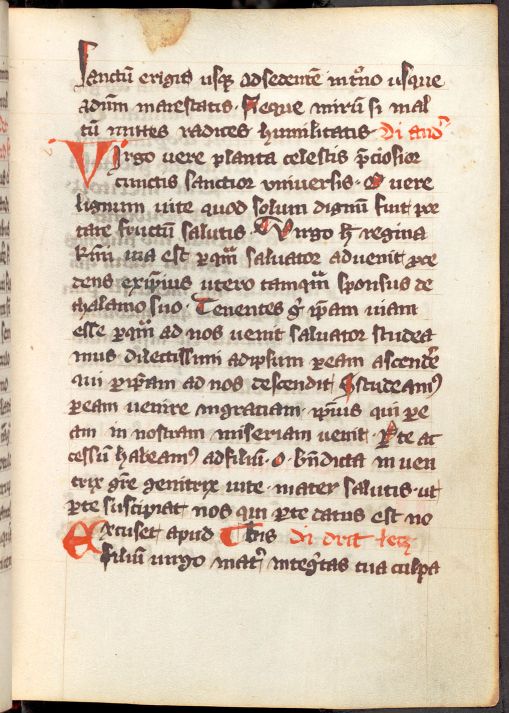 sanctū erigis usqꝫ ad sedentē in t̓no usque
ad dīm maiestatis. Neque mirū si mal
tū mittes radices humilitatis. Di and̓
Virgo vere planta celestis p̄ciosior
cunctis sanctior vniuersis. O vere
lignum uite quod solum dignū fuit por
tare fructū salutis. Virgo h̄ regina
ipsa uia est per quā saluator aduenit proce
dens ex ip̄ius utero tamquā sponsus de
thalamo suo. Tenentes g̊ ip̄am uiam
esse per quā ad nos uenit saluator studea
mus dilectissimi ad ipsum per eam ascendē
qui per ip̄am ad nos descendit. Studeamꝰ
per eam venire in gratiam. ip̄ius qui per e
am in nostram miseriam uenit. Per te ac
cessū habeamꝰ ad filiū. o bn̄dicta inuen
trix gr̄e genitrix uite. mater salutis. ut
per te suscipiat nos qui per te datus est no
Excuset apud bis di drit letz
filiū uirgo mat̓ integ̓tas tua culpa